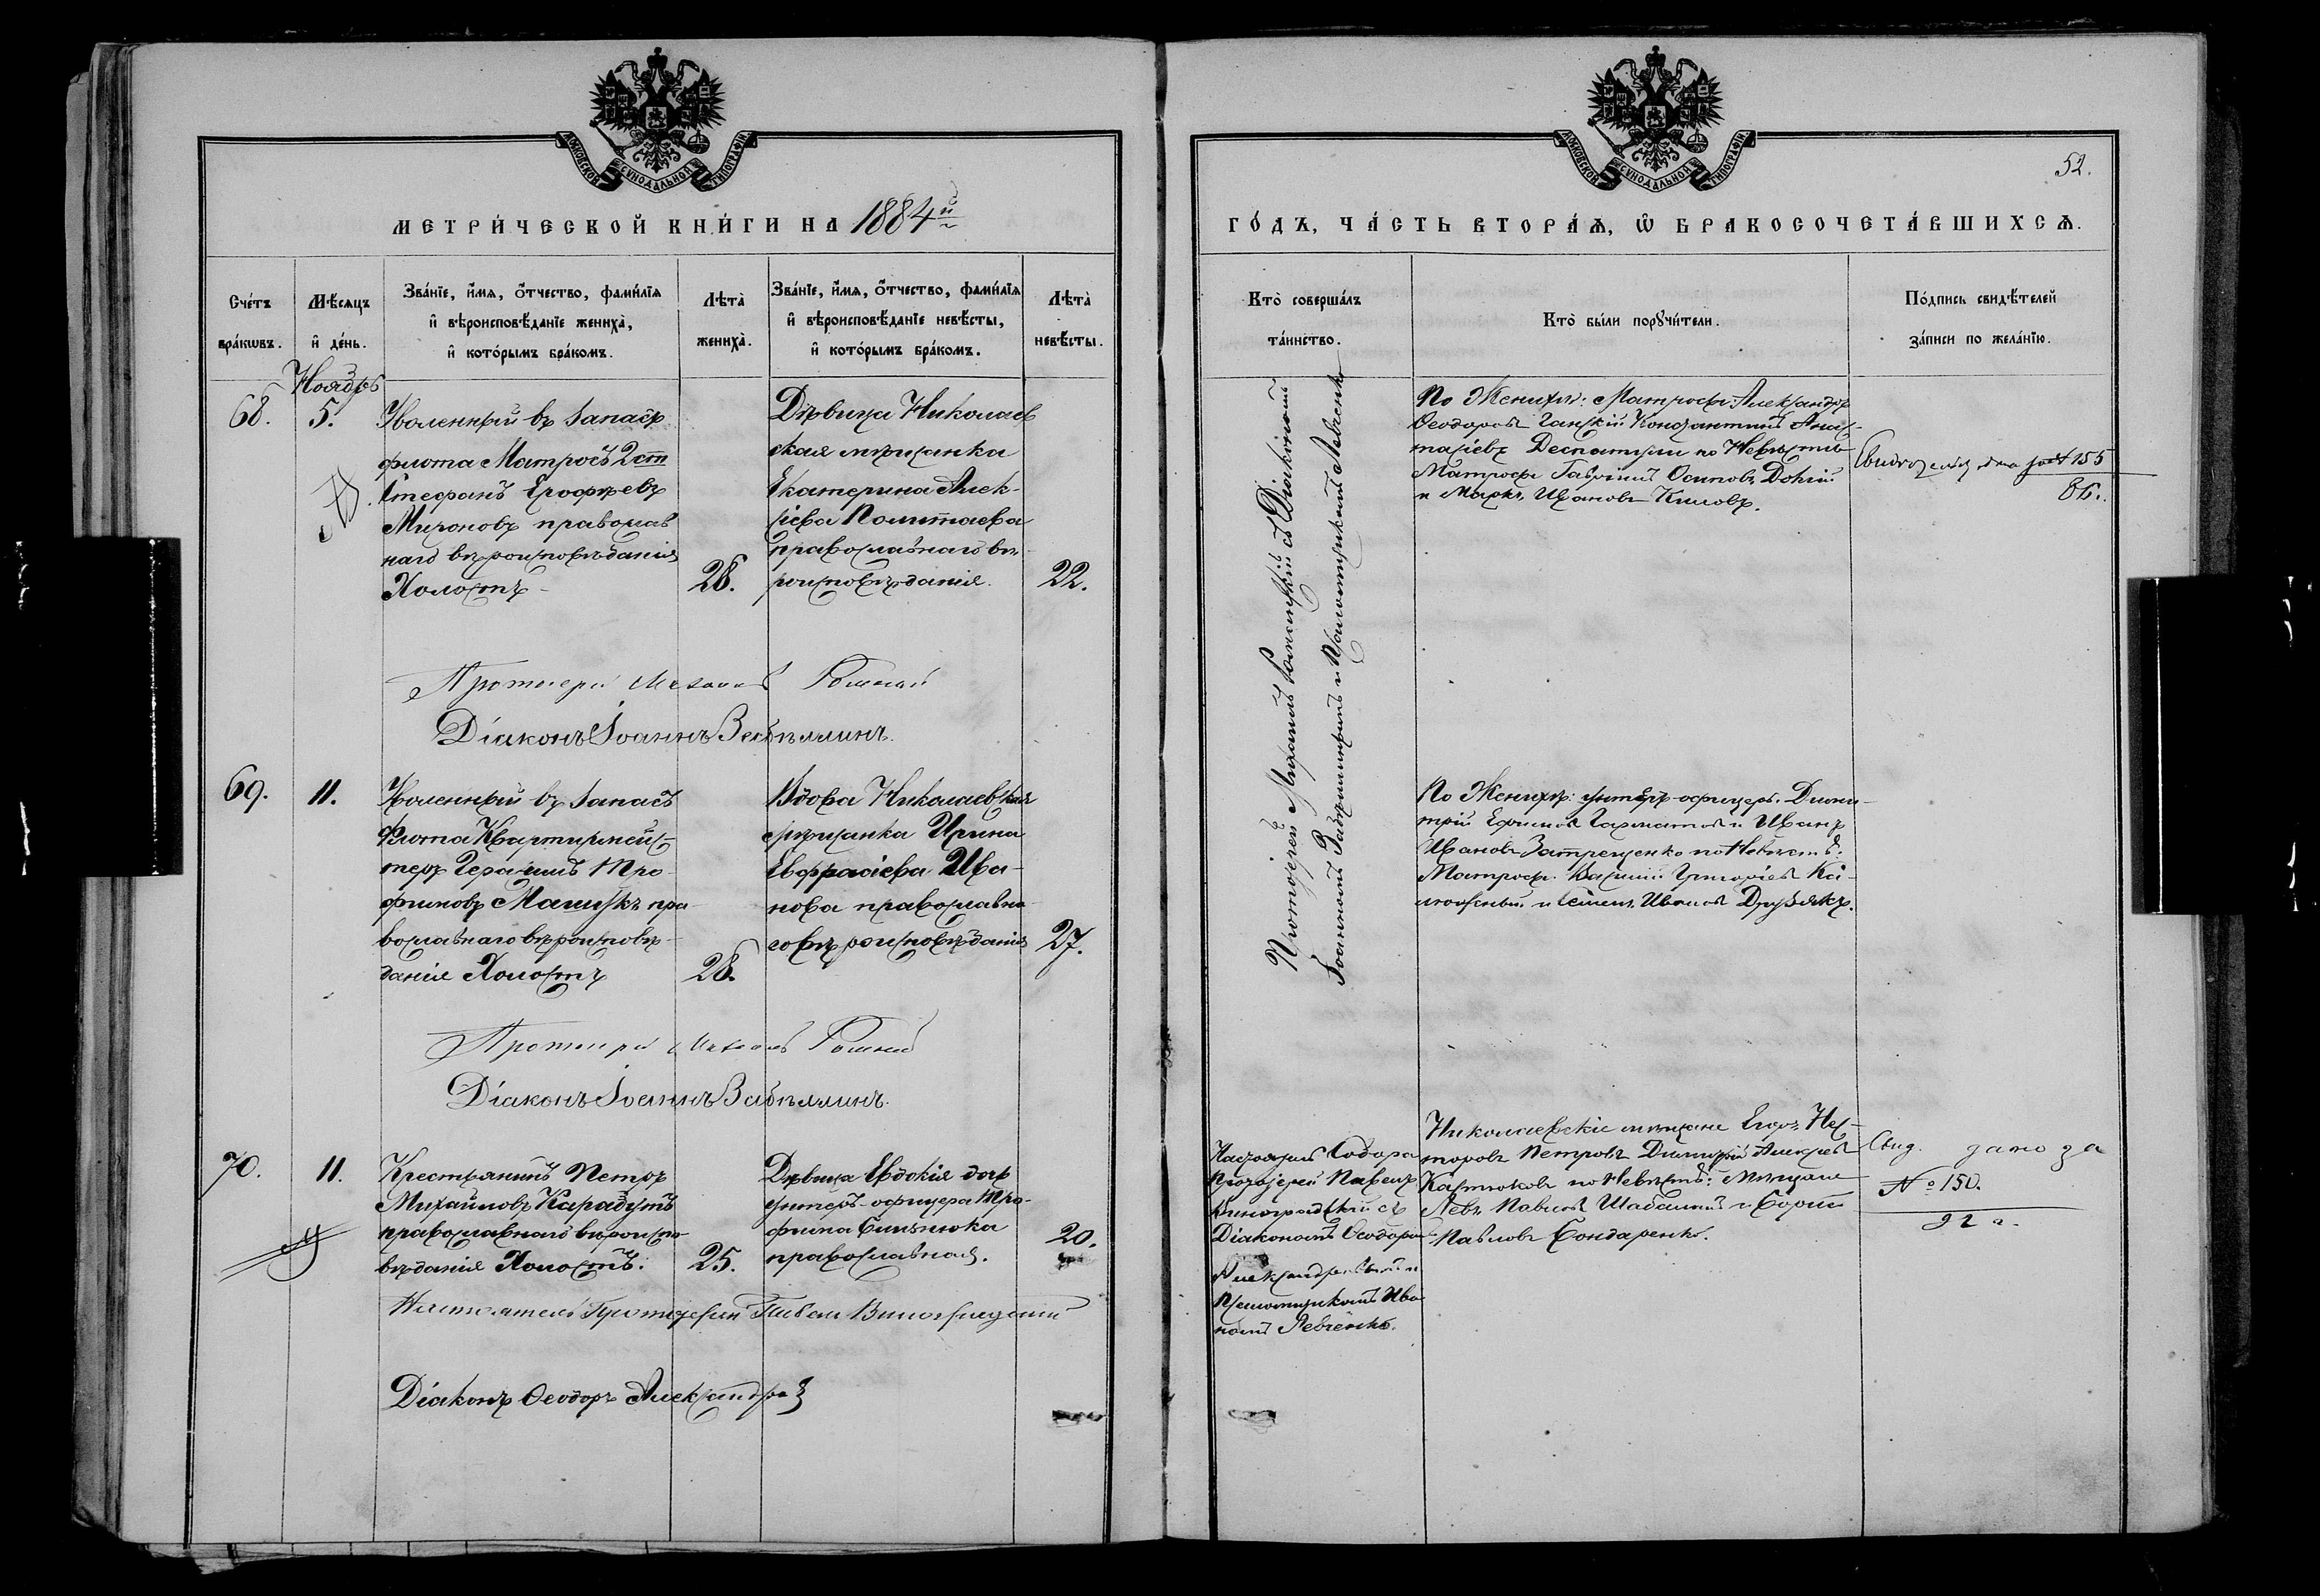 МОСКОВСКОЙ СУНОДАЛЬНОЙ ТИПОГРАФІИ
МЕТРИ́ЧЕСКОЙ КНИ́ГИ НА 1884й
Сче́тъ бра́кѡвъ.
Мѣ́сяцъ и҆ де́нь.
Зва́нїе, и҆́мѧ, ѻ҆́тчество, фами́лїѧ
и҆ вѣроисповѣ́данїе жениха̀,
и҆ кото́рымъ бра́комъ.
Лѣта̀
жениха̀.
Зва́нїе, и҆́мѧ, ѻ҆́тчество, фами́лїѧ
и҆ вѣроисповѣ́данїе невѣ́сты,
и҆ кото́рымъ бра́комъ.
Лѣта̀
невѣ́сты.
Ноябрь
68.
5.
Уволенный въ запасъ
флота Матросъ 2 ст
Стефанъ Ерофѣевъ
Мироновъ православ
наго вѣроисповѣданія
Холостъ
28.
Дѣвица Николаев
ская мѣщанка
Екатерина Алек-
сіева Полтаева
православнаго вѣ
роисповѣданія.
22.
Протоіерей Михаилъ
Діаконъ Іоаннъ
69.
11.
Уволенный въ запасъ
Флота Квартирмей-
стеръ Герасимъ Тро-
фимовъ пра-
вославнаго вѣроисповѣ-
данія Холостъ
28.
Вдова Николаевская
мѣщанка Ирина
Евфрасіева Ива-
нова православна
го вѣроисповѣданія
27.
Протоіерей Михаилъ
Діаконъ Іоаннъ
70.
11.
Крестьянинъ Петръ
Михайловъ Карабутъ
православнаго вѣроиспо-
вѣданія Холостъ.
25.
Дѣвица Евдокія дочь
унтеръ-офицера Тро-
фима
православная.
20.
Настоятель Протоіерей Павелъ Виноградскій
Діаконъ Ѳеодоръ Александровъ
МОСКОВСКОЙ СУНОДАЛЬНОЙ ТИПОГРАФІИ
52.
ГО́ДЪ, ЧА́СТЬ ВТОРА́Ѧ, Ѡ҆ БРАКОСОЧЕТА́ВШИХСѦ.
Кто̀ соверша́лъ
та́инство.
Кто̀ бы́ли порꙋчи́тели.
По́дпись свидѣ́телей
за́писи по жела́нїю.
Протоіерей Михаилъ съ Діакономъ
Іоанномъ и Псаломщикомъ Левченко
По Женихѣ: Матросы: Александръ
Ѳеодоровъ Ганскій Константинъ Анас-
тасіевъ по Невѣстѣ
Матросы Гавріилъ Осиповъ Довгій
и Маркъ Ивановъ
155
86.
По Женихѣ: унтеръ-офицеръ Дими-
трій Ефимовъ и Иванъ
Ивановъ по Невѣстѣ:
Матросы Григорьевъ
и Ивановъ
Настоятель Собора
Протоіерей Павелъ
Виноградскій съ
Діакономъ Ѳеодоромъ
Александровымъ и
Псаломщикомъ Ива
номъ Левченко.
Николаевскіе мѣщане Егоръ Нес-
торовъ Петровъ Димитрій Алексѣевъ
по Невѣстѣ: Мѣщане
Левъ Павловъ и
Павловъ Бондаренко.
Свид. дано за
№ 150.
92 г.